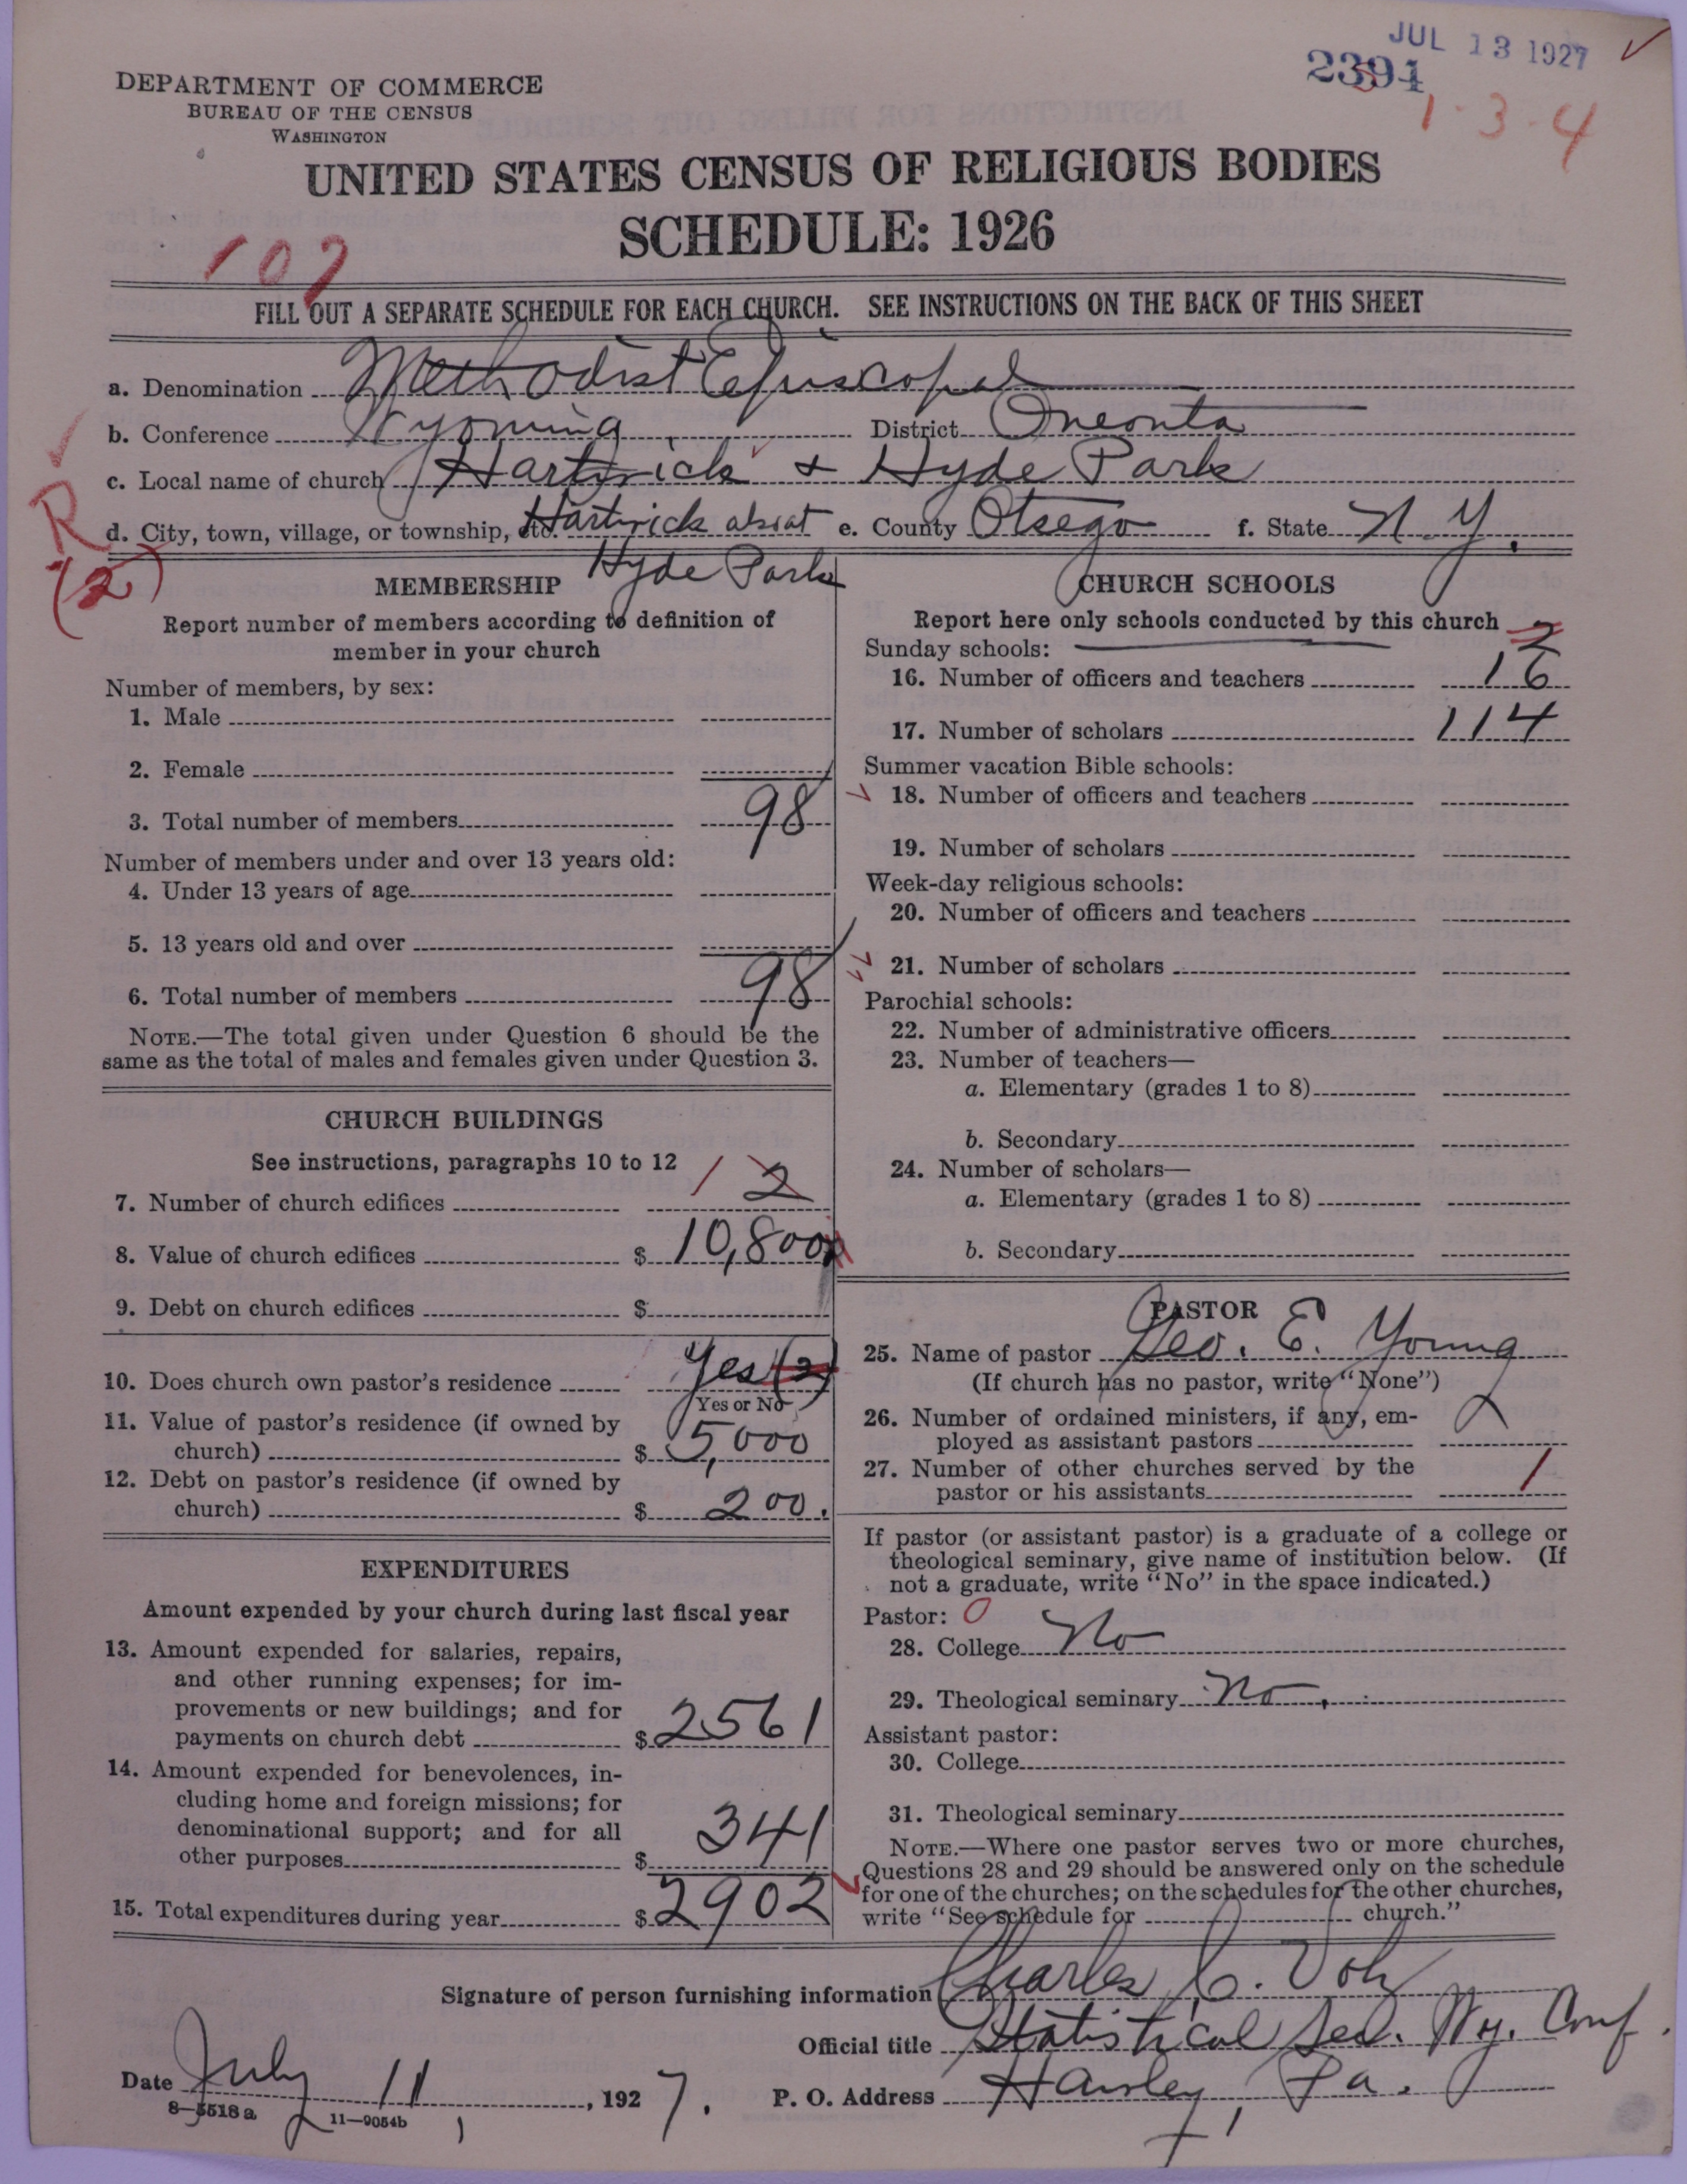 JUL 13 1927
2394
1-3-4
DEPARTMENT OF COMMERCE
BUREAU OF THE CENSUS
WASHINGTON
UNITED STATES CENSUS OF RELIGIOUS BODIES
SCHEDULE: 1926
107
FILL OUT A SEPARATE SCHEDULE FOR EACH CHURCH. SEE INSTRUCTIONS ON THE BACK OF THIS SHEET
a. Denomination Methodist Episcopal
b. Conference Wyoming District Oneonta
c. Local name of church Hartwick + Hyde Park
R
d. City, town, village, or township, etc. Hartwick also at e. County Otsego f. State N.Y.
Hyde Park
(2)
MEMBERSHIP
Report number of members according to definition of
member in your church
Number of members, by sex:
1. Male
2. Female
3. Total number of members 98
Number of members under and over 13 years old:
4. Under 13 years of age
5. 13 years old and over
6. Total number of members 98
NOTE.—The total given under Question 6 should be the
same as the total of males and females given under Question 3.
CHURCH BUILDINGS
See instructions, paragraphs 10 to 12
7. Number of church edifices 1 2
8. Value of church edifices $ 10,800
9. Debt on church edifices $
10. Does church own pastor's residence Yes (2)
Yes or No
11. Value of pastor's residence (if owned by
church) $ 5,000
12. Debt on pastor's residence (if owned by
church) $ 200.
EXPENDITURES
Amount expended by your church during last fiscal year
13. Amount expended for salaries, repairs,
and other running expenses; for im-
provements or new buildings; and for
payments on church debt $ 2561
14. Amount expended for benevolences, in-
cluding home and foreign missions; for
denominational support; and for all
other purposes $ 341
15. Total expenditures during year $ 2902
CHURCH SCHOOLS
Report here only schools conducted by this church
2
Sunday schools:
16. Number of officers and teachers 16
17. Number of scholars 114
Summer vacation Bible schools:
18. Number of officers and teachers
19. Number of scholars
Week-day religious schools:
20. Number of officers and teachers
21. Number of scholars
Parochial schools:
22. Number of administrative officers
23. Number of teachers—
a. Elementary (grades 1 to 8)
b. Secondary
24. Number of scholars—
a. Elementary (grades 1 to 8)
b. Secondary
PASTOR
25. Name of pastor Geo. E. Young
(If church has no pastor, write "None")
26. Number of ordained ministers, if any, em-
ployed as assistant pastors
27. Number of other churches served by the
pastor or his assistants 1
If pastor (or assistant pastor) is a graduate of a college or
theological seminary, give name of institution below. (If
not a graduate, write "No" in the space indicated.)
Pastor: 0
28. College No
29. Theological seminary No
Assistant pastor:
30. College
31. Theological seminary
NOTE.—Where one pastor serves two or more churches,
Questions 28 and 29 should be answered only on the schedule
for one of the churches; on the schedules for the other churches,
write "See schedule for church."
Signature of person furnishing information Charles C.
Official title Statistical Sec. Wy. Conf.
Date July 11, 1927. P. O. Address Pa.
8-5518a 11-9054b